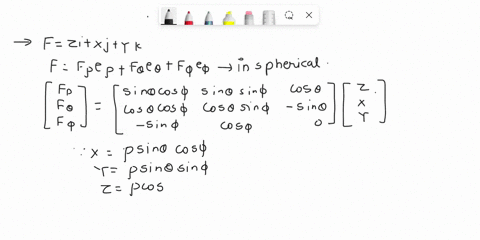 → F = zi + xj + yk
F = Fρeρ + Fθeθ + Fϕeϕ → in spherical.
[Fρ Fθ Fϕ] = [sinθcosϕ sinθsinϕ cosθ
cosθcosϕ cosθsinϕ -sinθ
-sinϕ cosϕ 0] [z x y]
∵ x = ρsinθ cosϕ
y = ρsinθsinϕ
z = ρcos